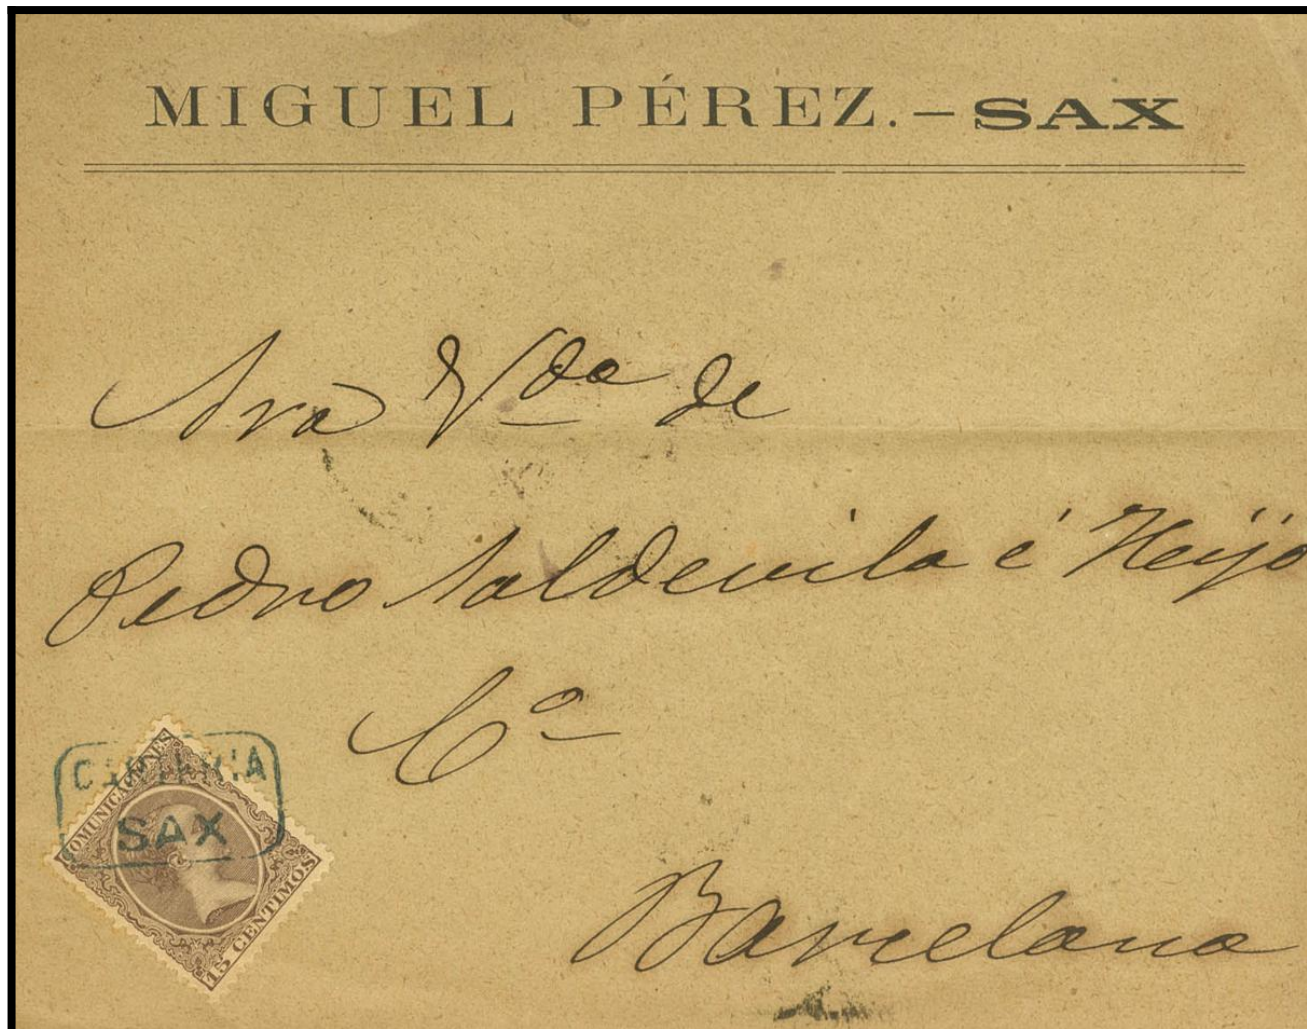 MIGUEL PÉREZ.-SAX
Sra Vda de
Pedro Saldevila é Heijo
Cª
Barcelona
CARTERIA
SAX
COMUNICACIONES
15 CENTIMOS